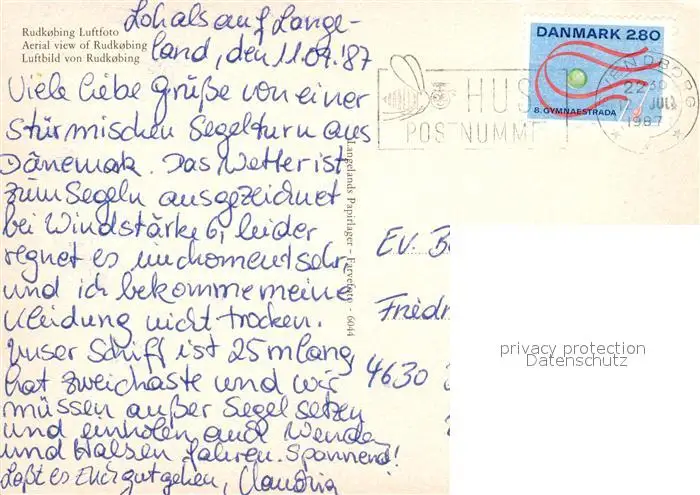 Rudkøbing Luftfoto
Aerial view of Rudkøbing
Luftbild von Rudkøbing
Lohals auf Lange-
land, den 11.07.'87
Viele liebe Grüße von einer
stürmischen Segelturn aus
Dänemark. Das Wetter ist
zum Segeln ausgezeichnet
bei Windstärke 6, leider
regnet es im Moment sehr
und ich bekomme meine
Kleidung nicht trocken.
Unser Schiff ist 25 m lang
hat zwei Maste und wir
müssen außer Segel setzen
und einholen auch Wenden
und Halsen fahren. Spannend!
Laßt es Euch gut gehen, Claudia
Langelands Papirlager – Farvefoto – 6044
DANMARK 2.80
8. GYMNAESTRADA
HUSK
POSTNUMME
SVENDBORG
22 30
JULI
1987
EV. B
Friedr
4630
privacy protection
Datenschutz